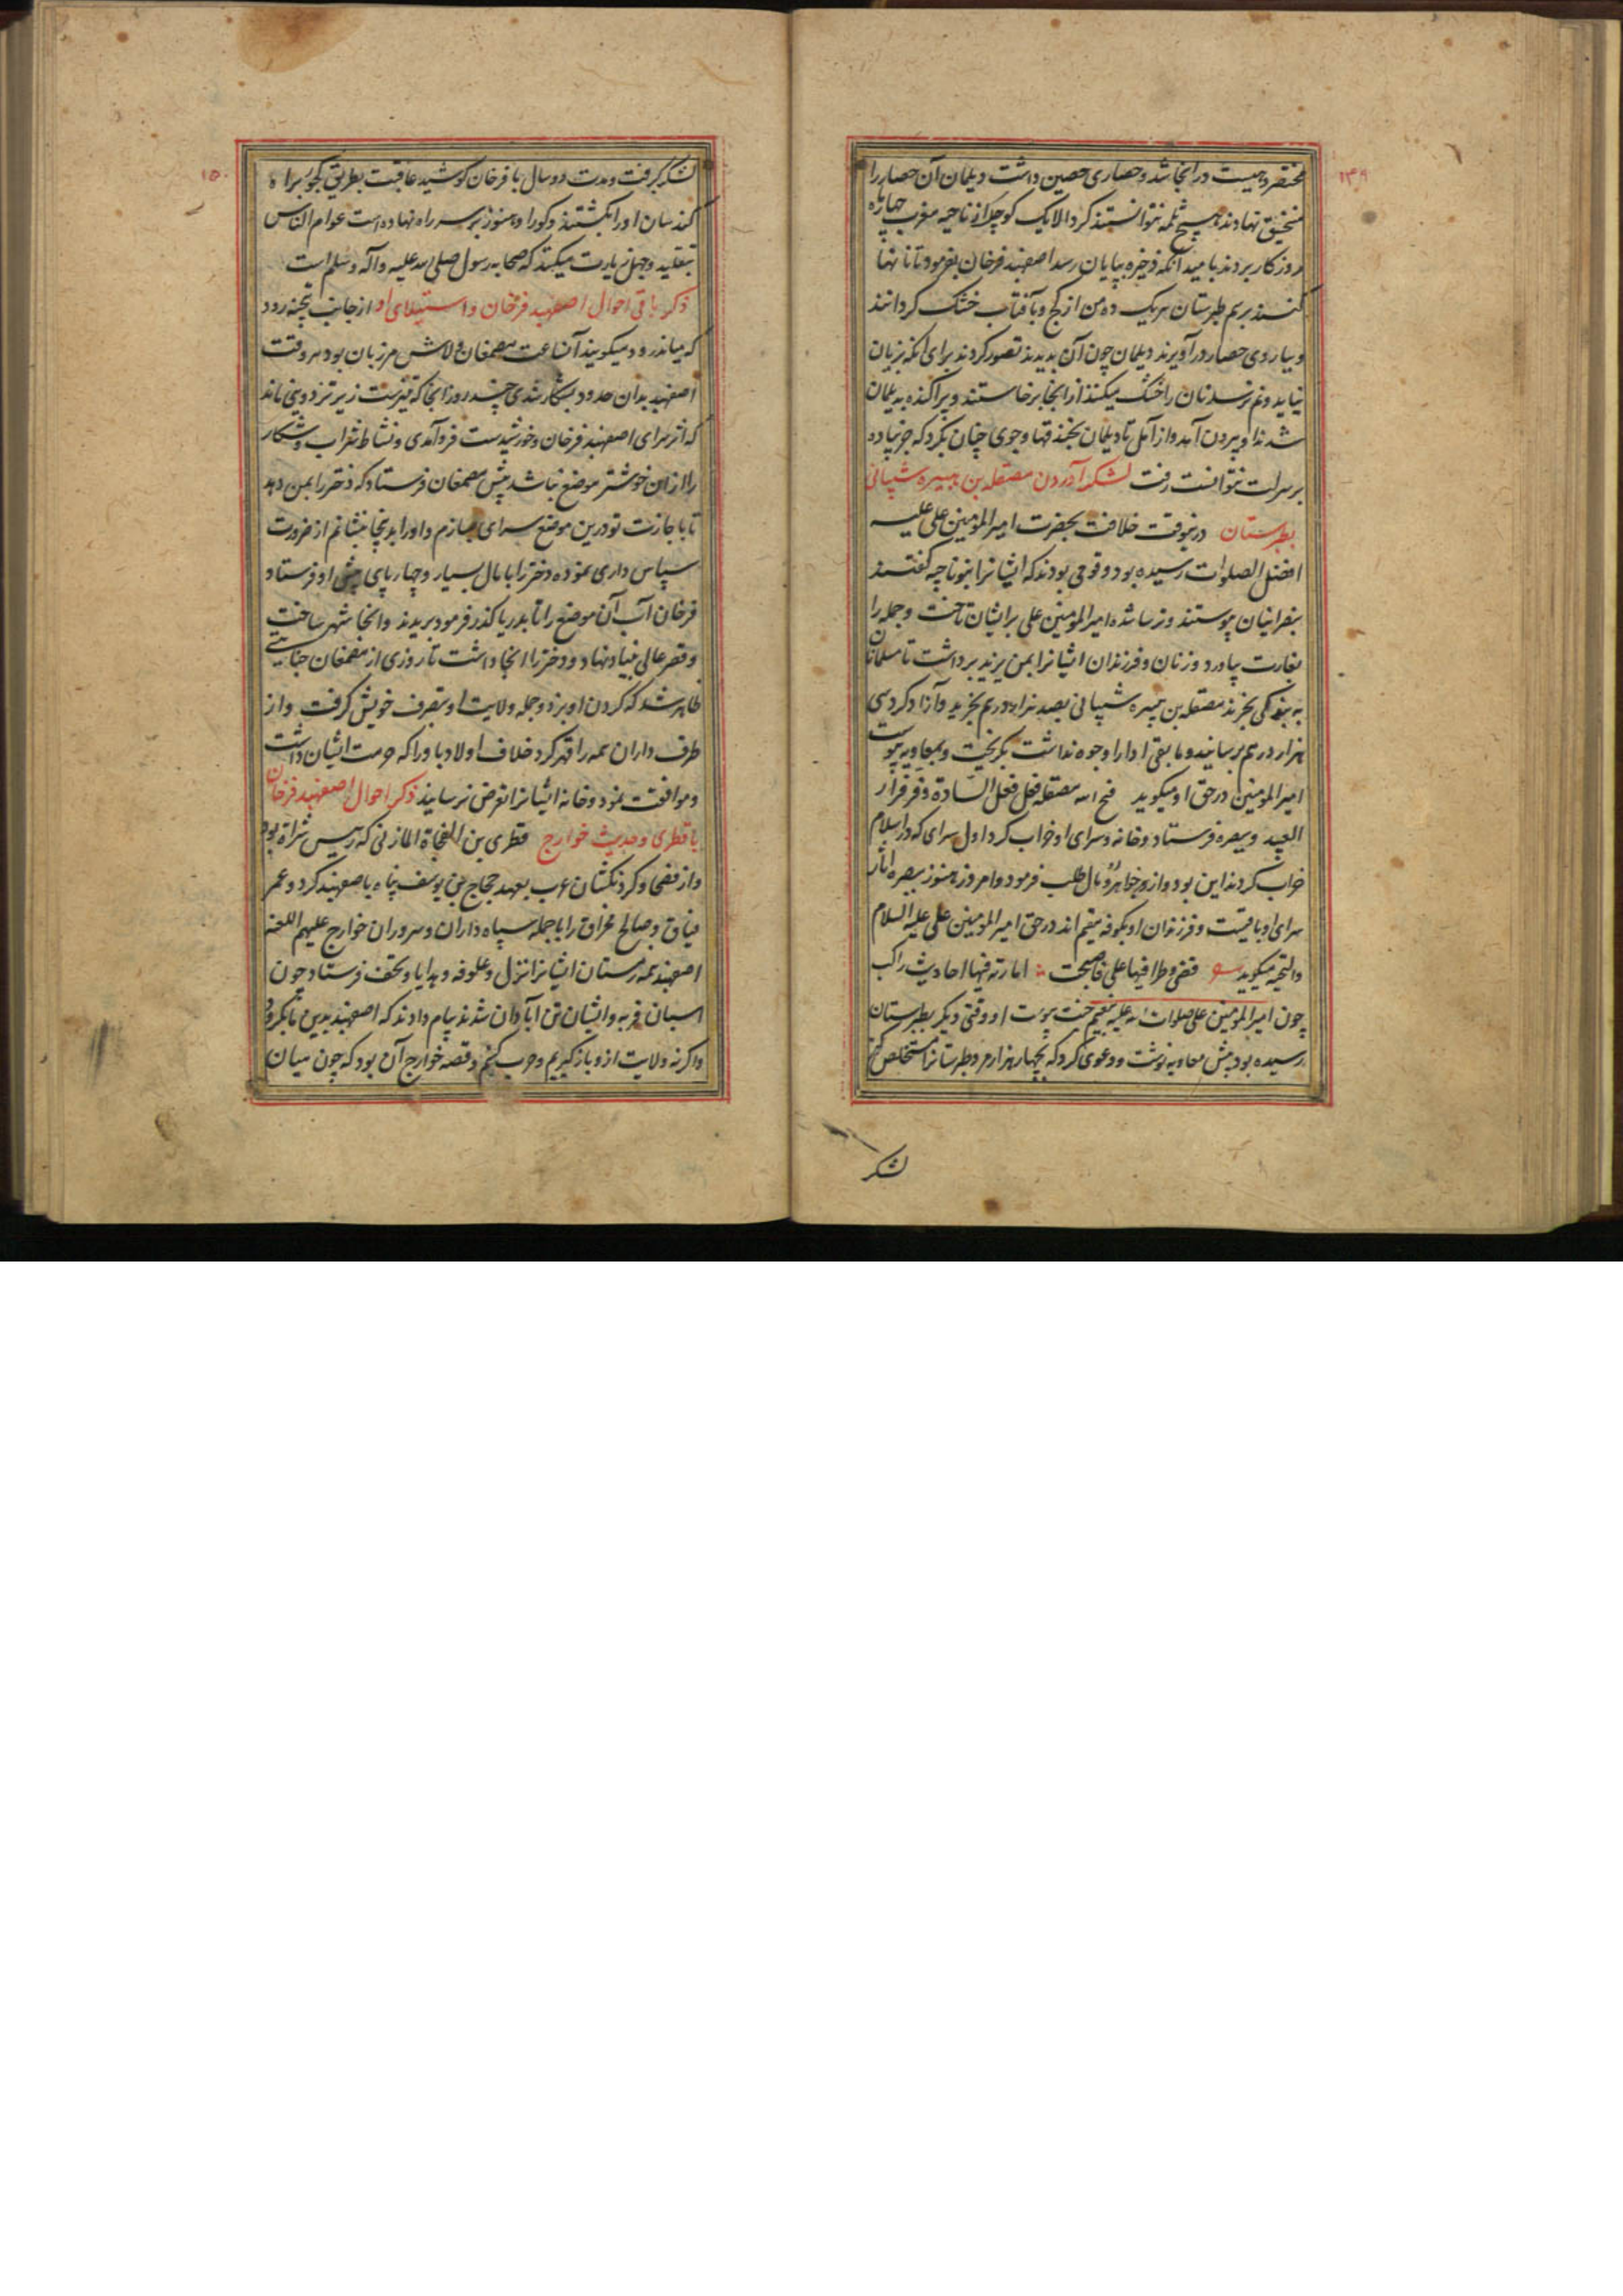 ۱۴۹
مختصر و هست در آنجا شد و حصاری حصین داشت دیلمان آن حصار را
منجنیق نهادند هیچ ثلمه نتوانستند کرد الا یک کوچک از ناحیه مغرب چهار ماه
روزکار بردند بامید آنکه ذخیره بپایان رسد اصفهبد فرخان بفرمود تا نانها
کنند برسم طبرستان هریک ده من از کج و بآفتاب خشک کردانند
و بباروی حصار درآویزند دیلمان چون آن بدیدند تصور کردند برای آنکه بزیان
نیاید و نم نرسد نان را خشک میکنند از آنجا برخاستند و پراکنده به دیلمان
شدند او بیرون آمد و از آمل تا دیلمان بخندقها و جوی چنان بکرد که جز پیاده
برسرات نتوانست رفت لشکر آوردن مصقله بن هبیره شیبانی
بطبرستان درینوقت خلافت بحضرت امیر المؤمنین علی علیه
افضل الصلوات رسیده بود و قومی بودند که ایشانرا بنو ناجیه کفتند
بنصرانیان پیوستند و ترسا شده امیر المؤمنین علی برایشان تاخت و جمله را
بغارت بیاورد و زنان و فرزندان ایشانرا بمن یزید برداشت تا مسلمانان
به بندکی بخرند مصقله بن هبیره شیبانی بصد هزار درم بخرید و آزاد کرد سی
هزار درهم برسانید و ما بقی ادا را وجوه نداشت بکریخت و بمعاویه پیوست
امیر المؤمنین در حق او میکوید قبح الله مصقله فعل فعل السادة و فر فرار
العبید و ببصره فرستاد و خانه و سرای او خراب کرد اول سرای که در اسلام
خراب کردند این بود و از خواهر او مال طلب فرمود و امروز هنوز ببصره آثار
سرای او باقیست و فرزندان او بکوفه مقیم اند در حق امیر المؤمنین علی علیه السلام
والتحیه میکوید قضی وطرا فیها علی فاصبحت امارته فیها احادیث راکب
چون امیر المؤمنین علی صلوات الله علیه بنعیم جنت پیوست او وقتی دیکر بطبرستان
رسیده بود پیش معاویه نوشت و دعوی کرد که بچهار هزار مرد طبرستانرا مستخلص کنم
لشکر
۱۵۰
لشکر برکرفت و مدت دو سال با فرخان کوشید عاقبت بطریق کجور براه
کندسان او را بکشتند و کور او هنوز بر سر راه نهاده است عوام الناس
بتقلید و جهل زیارت میکنند که صحابه رسول صلی الله علیه وآله وسلم است
ذکر باقی احوال اصفهبد فرخان و استیلای او از جانب تیجنه رود
که میاندرود میکویند آنساعت مصمغان ولاش مرزبان بود هر وقت
اصفهبد بدان حدود بشکار شدی چند روز آنجا که تیزیست زیر تر دوینی ناند
که اثر سرای اصفهبد فرخان و خورشیدست فرو آمدی و نشاط شراب و شکار
را از آن خوشتر موضع نباشد پیش مصمغان فرستاد که دختر را بمن دهد
تا باجازت تو درین موضع سرای سازم و او را بدینجا بنشانم از ضرورت
سپاس داری نموده دختر را با مال بسیار و چهارپای پیش او فرستاد
فرخان آب آن موضع را تا بدریا کذر فرمود بریدند و آنجا شهر ساخت
و قصر عالی بنیاد نهاد و دختر را آنجا داشت تا روزی از مصمغان جنایتی
ظاهر شد که کردن او بزد و جمله ولایت او بتصرف خویش کرفت و از
طرف داران همه را قهر کرد خلاف اولاد باو را که حرمت ایشان داشت
و موافقت نمود و خانه ایشانرا تعرض نرسانید ذکر احوال اصفهبد فرخان
با قطری و حدیث خوارج قطری بن الفجاة المازنی که رئیس شراة بود
و از فصحا و کردنکشان عرب بعهد حجاج بن یوسف پناه باصفهبد کرد و عمر
فیاق و صالح مخراق را با جمله سپاه داران و سروران خوارج علیهم اللعنه
اصفهبد همه زمستان ایشانرا نزل و علوفه و هدایا و تحف فرستاد چون
اسبان فربه و ایشان تن آبادان شدند پیام دادند که اصفهبد بدین ما بکرود
و اکر نه ولایت ازو باز کیریم و حرب کنیم و قصه خوارج آن بود که چون میان